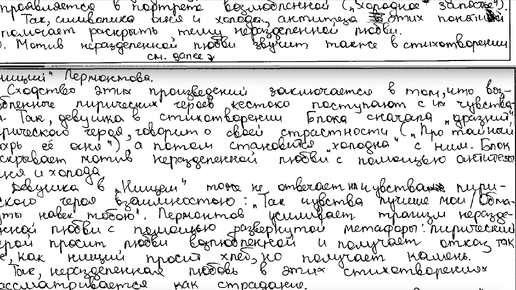 проявляется в портрете возлюбленной („холодное запястье").
Так, символика огня и холода, антитеза этих понятий
помогает раскрыть тему неразделенной любви.
). Мотив неразделенной любви звучит также в стихотворении
см. далее
нищий" Лермонтова.
Сходство этих произведений заключается в том, что воз-
бленные лирических героев жестоко поступают с их чувства-
и. Так, девушка в стихотворении Блока сначала „дразнит"
рического героя, говорит о своей страстности („Про тайный
ее огня"), а потом становится „холодна" с ним. Блок
скрывает мотив неразделенной любви с помощью антитезы
ня и холода.
Девушка в „Нищем" тоже не отвечает на чувства лири-
ского героя взаимностью: „Так чувства лучшие мои / Обма-
уты навек тобою". Лермонтов усиливает трагизм неразде-
нной любви с помощью развернутой метафоры: лирический
ерой просит любви возлюбленной и получает отказ, так
е, как нищий просит хлеб, но получает камень.
Так, неразделенная любовь в этих стихотворениях
ассматривается как страдание.